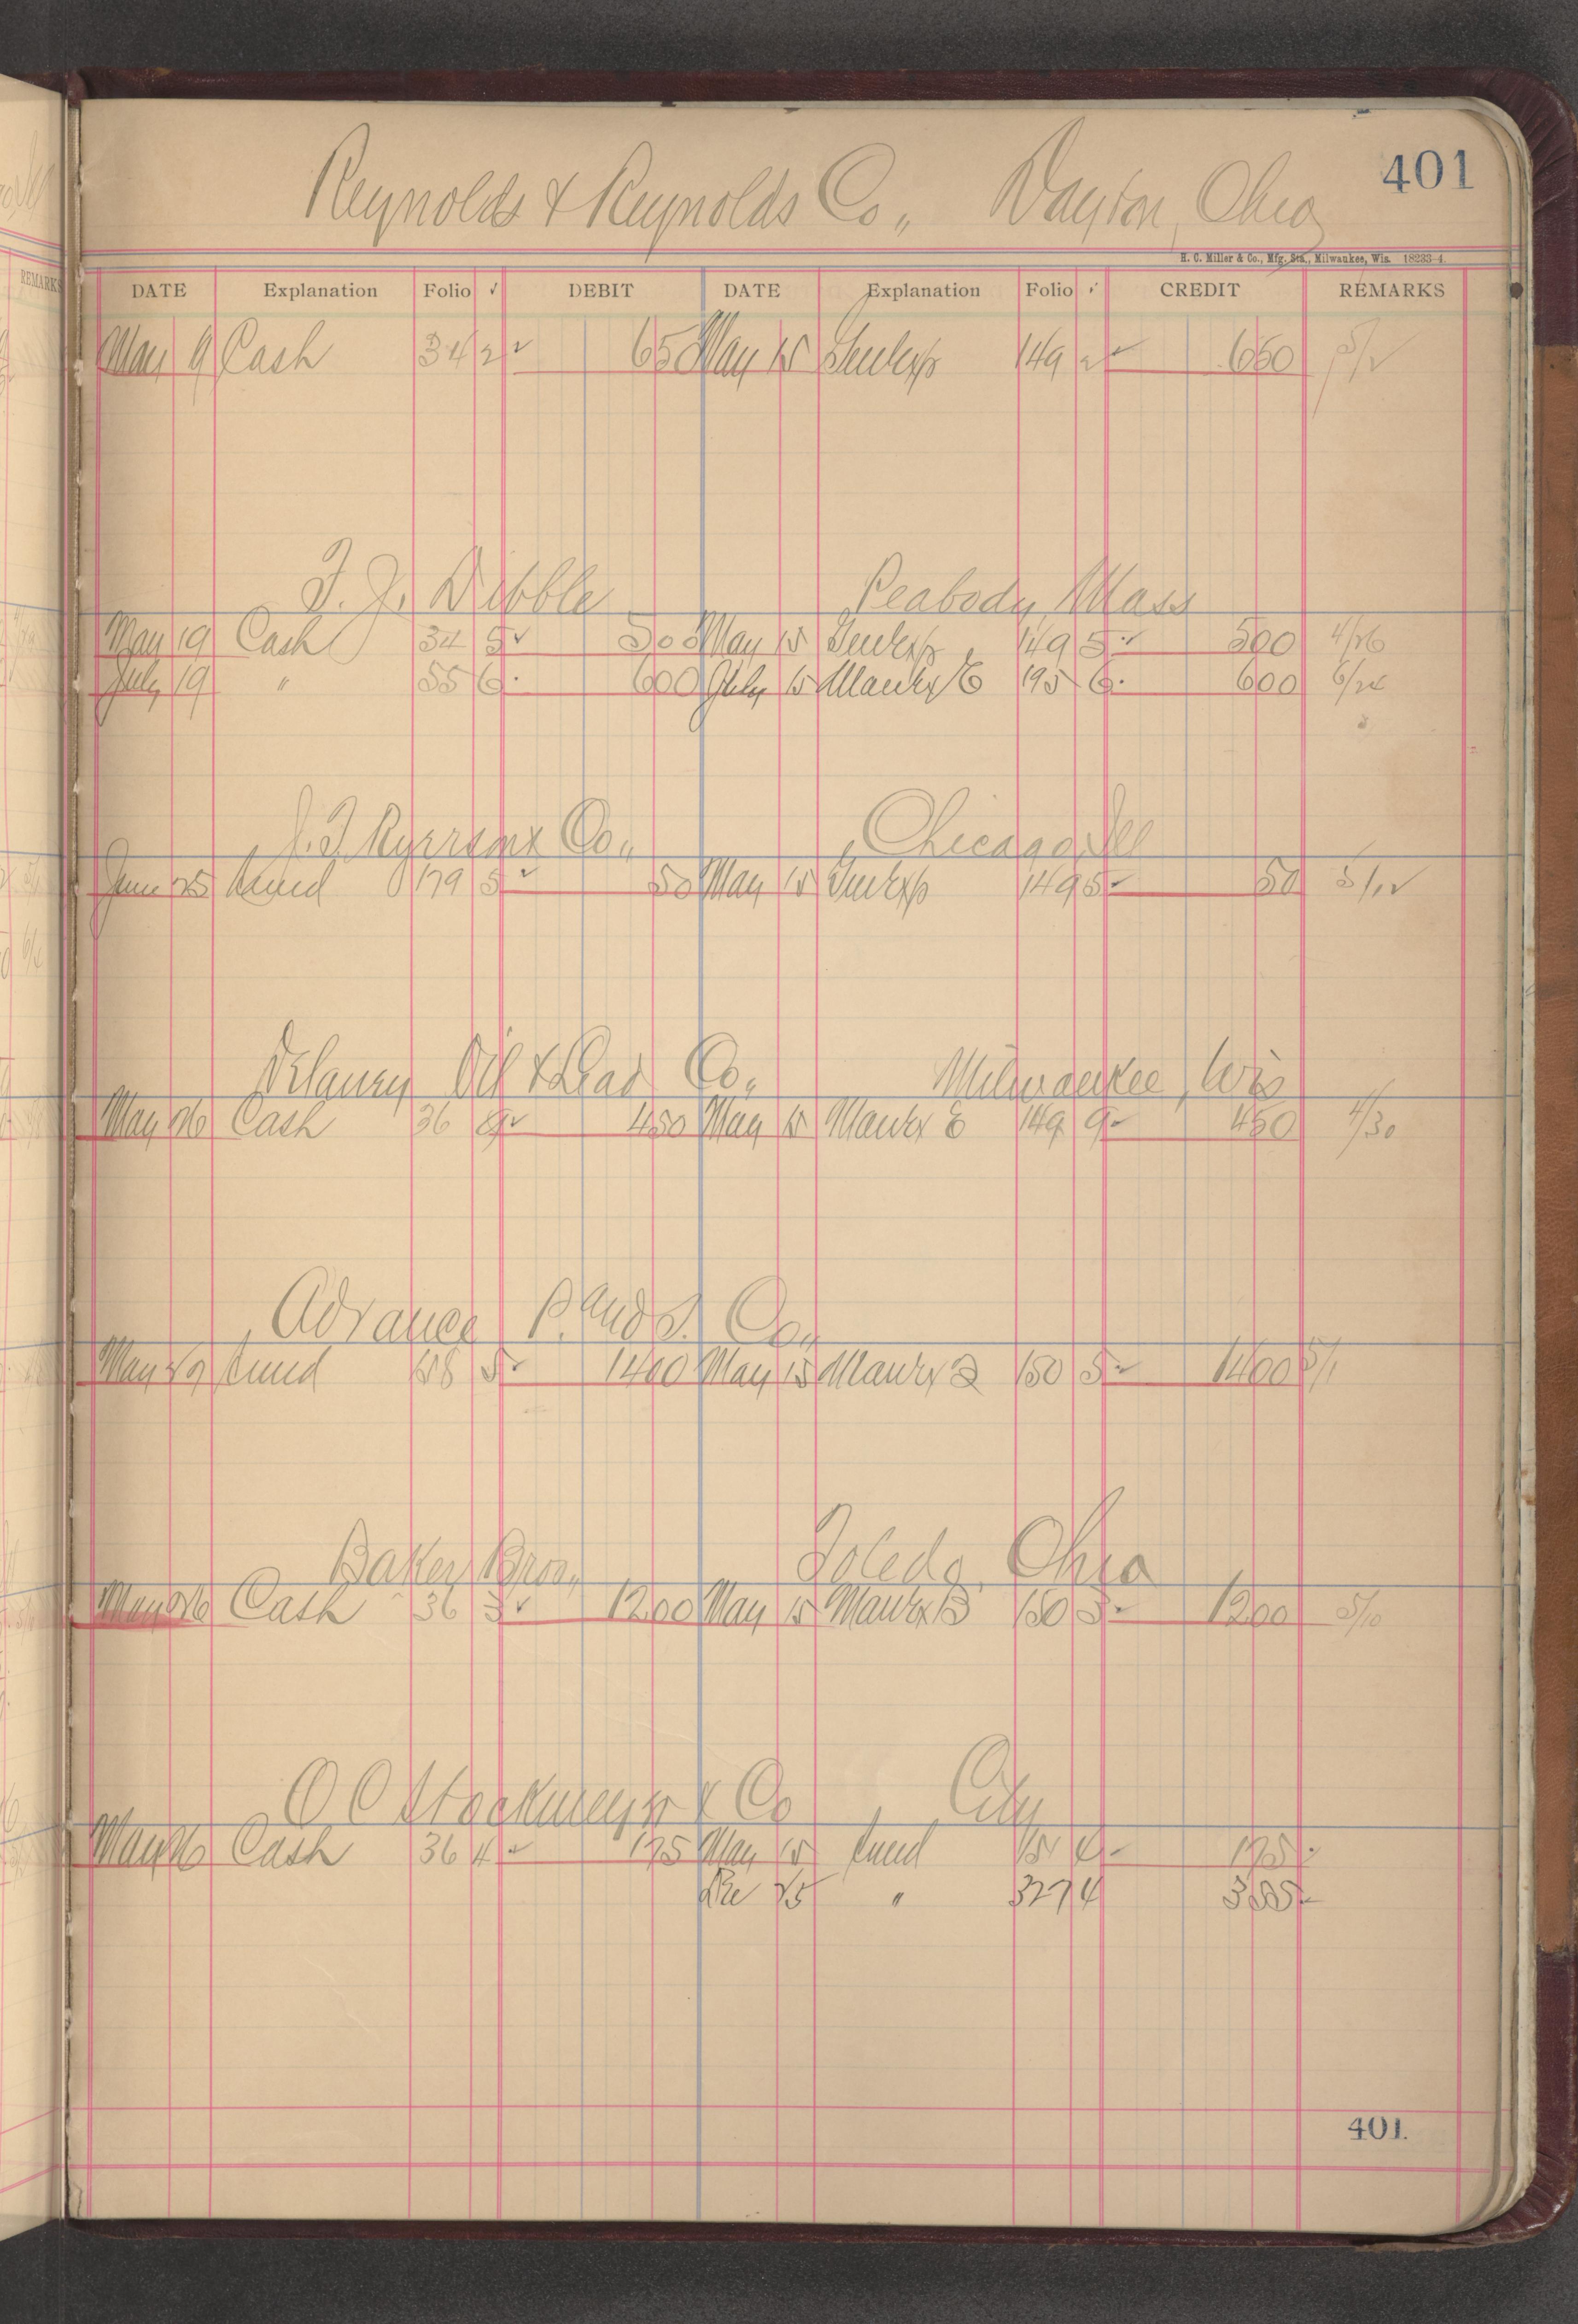 401
Reynolds & Reynolds Co., Dayton, Ohio
H. C. Miller & Co., Mfg. Sta., Milwaukee, Wis. 18233-4.
DATE Explanation Folio ✓ DEBIT DATE Explanation Folio ✓ CREDIT REMARKS
May 19 Cash 34 2 ✓ 650 May 15 149 2 ✓ 650 5/2
F. J. Dibble Peabody, Mass
May 19 Cash 34 5 ✓ 500 May 15 149 5 ✓ 500 4/26
July 19 " 55 6 600 July 15 195 6 600 6/24
J. T. Ryerson & Co., Chicago, Ill
June 25 179 5 ✓ 50 May 15 149 5 ✓ 50 5/12
Delaney Oil & Lead Co., Milwaukee, Wis
May 26 Cash 36 9 ✓ 450 May 15 149 9 ✓ 450 4/30
Advance P. and S. Co.,
May 29 158 5 ✓ 1400 May 15 150 5 ✓ 1400 5/1
Baker Bros., Toledo, Ohio
May 26 Cash 36 3 ✓ 1200 May 15 150 3 ✓ 1200 5/10
O C Stockmeyer & Co City
May 26 Cash 36 4 ✓ 175 May 15 4 ✓ 175
Dec 25 " 327 4
401.